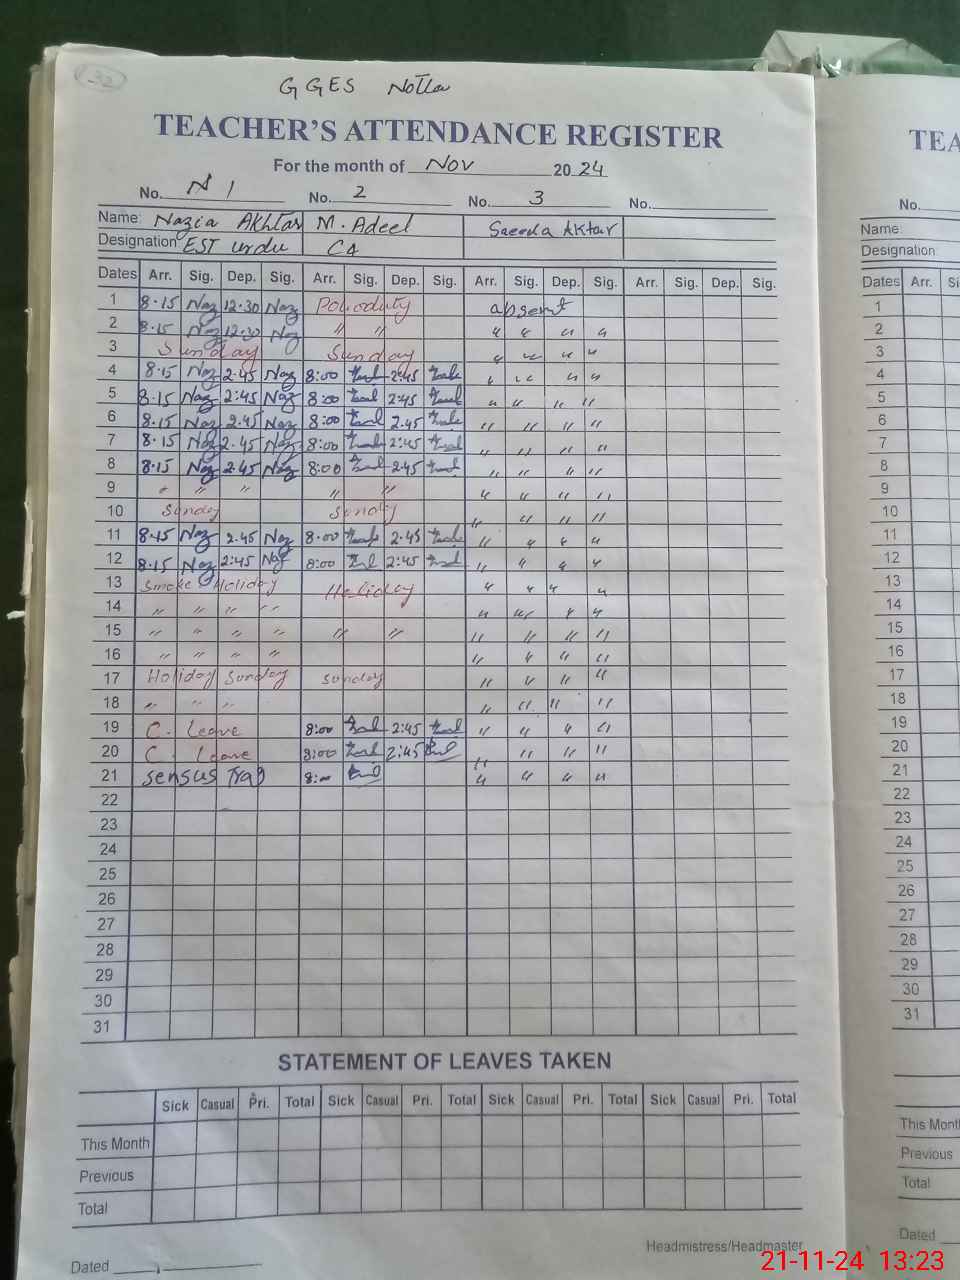 32
GGES Notla
TEACHER'S ATTENDANCE REGISTER
For the month of Nov 2024
No. N 1 No. 2 No. 3 No.
Name: Nazia Akhtar M. Adeel Saeeda Aktar
Designation EST urdu C4
Dates Arr. Sig. Dep. Sig. Arr. Sig. Dep. Sig. Arr. Sig. Dep. Sig. Arr. Sig. Dep. Sig.
1 8.15 Naz 12.30 Naz Polio duty absent
2 8.15 Naz 12.30 Naz " " " " " "
3 Sunday Sunday " " " "
4 8.15 Naz 2.45 Naz 8:00 2:45 " " " "
5 8.15 Naz 2:45 Naz 8:00 2:45 " " " "
6 8.15 Naz 2.45 Naz 8:00 2.45 " " " "
7 8.15 Naz 2.45 Naz 8:00 2:45 " " " "
8 8.15 Naz 2.45 Naz 8:00 2.45 " " " "
9 " " " " " " " " "
10 Sunday Sunday " " " "
11 8.15 Naz 2.45 Naz 8.00 2.45 " " " "
12 8.15 Naz 2:45 Naz 8:00 2:45 " " " "
13 Smoke Holiday Holiday " " " "
14 " " " " " " " "
15 " " " " " " " " " "
16 " " " " " " " "
17 Holiday Sunday Sunday " " " "
18 " " " " " " "
19 C. Leave 8:00 2:45 " " " "
20 C. Leave 8:00 2:45 " " " "
21 Sensus Trag 8:00 " " " "
22
23
24
25
26
27
28
29
30
31
STATEMENT OF LEAVES TAKEN
Sick Casual Pri. Total Sick Casual Pri. Total Sick Casual Pri. Total Sick Casual Pri. Total
This Month
Previous
Total
Headmistress/Headmaster
Dated
TEA
No.
Name:
Designation:
Dates Arr. S
1
2
3
4
5
6
7
8
9
10
11
12
13
14
15
16
17
18
19
20
21
22
23
24
25
26
27
28
29
30
31
This Mont
Previous
Total
Dated
21-11-24 13:23